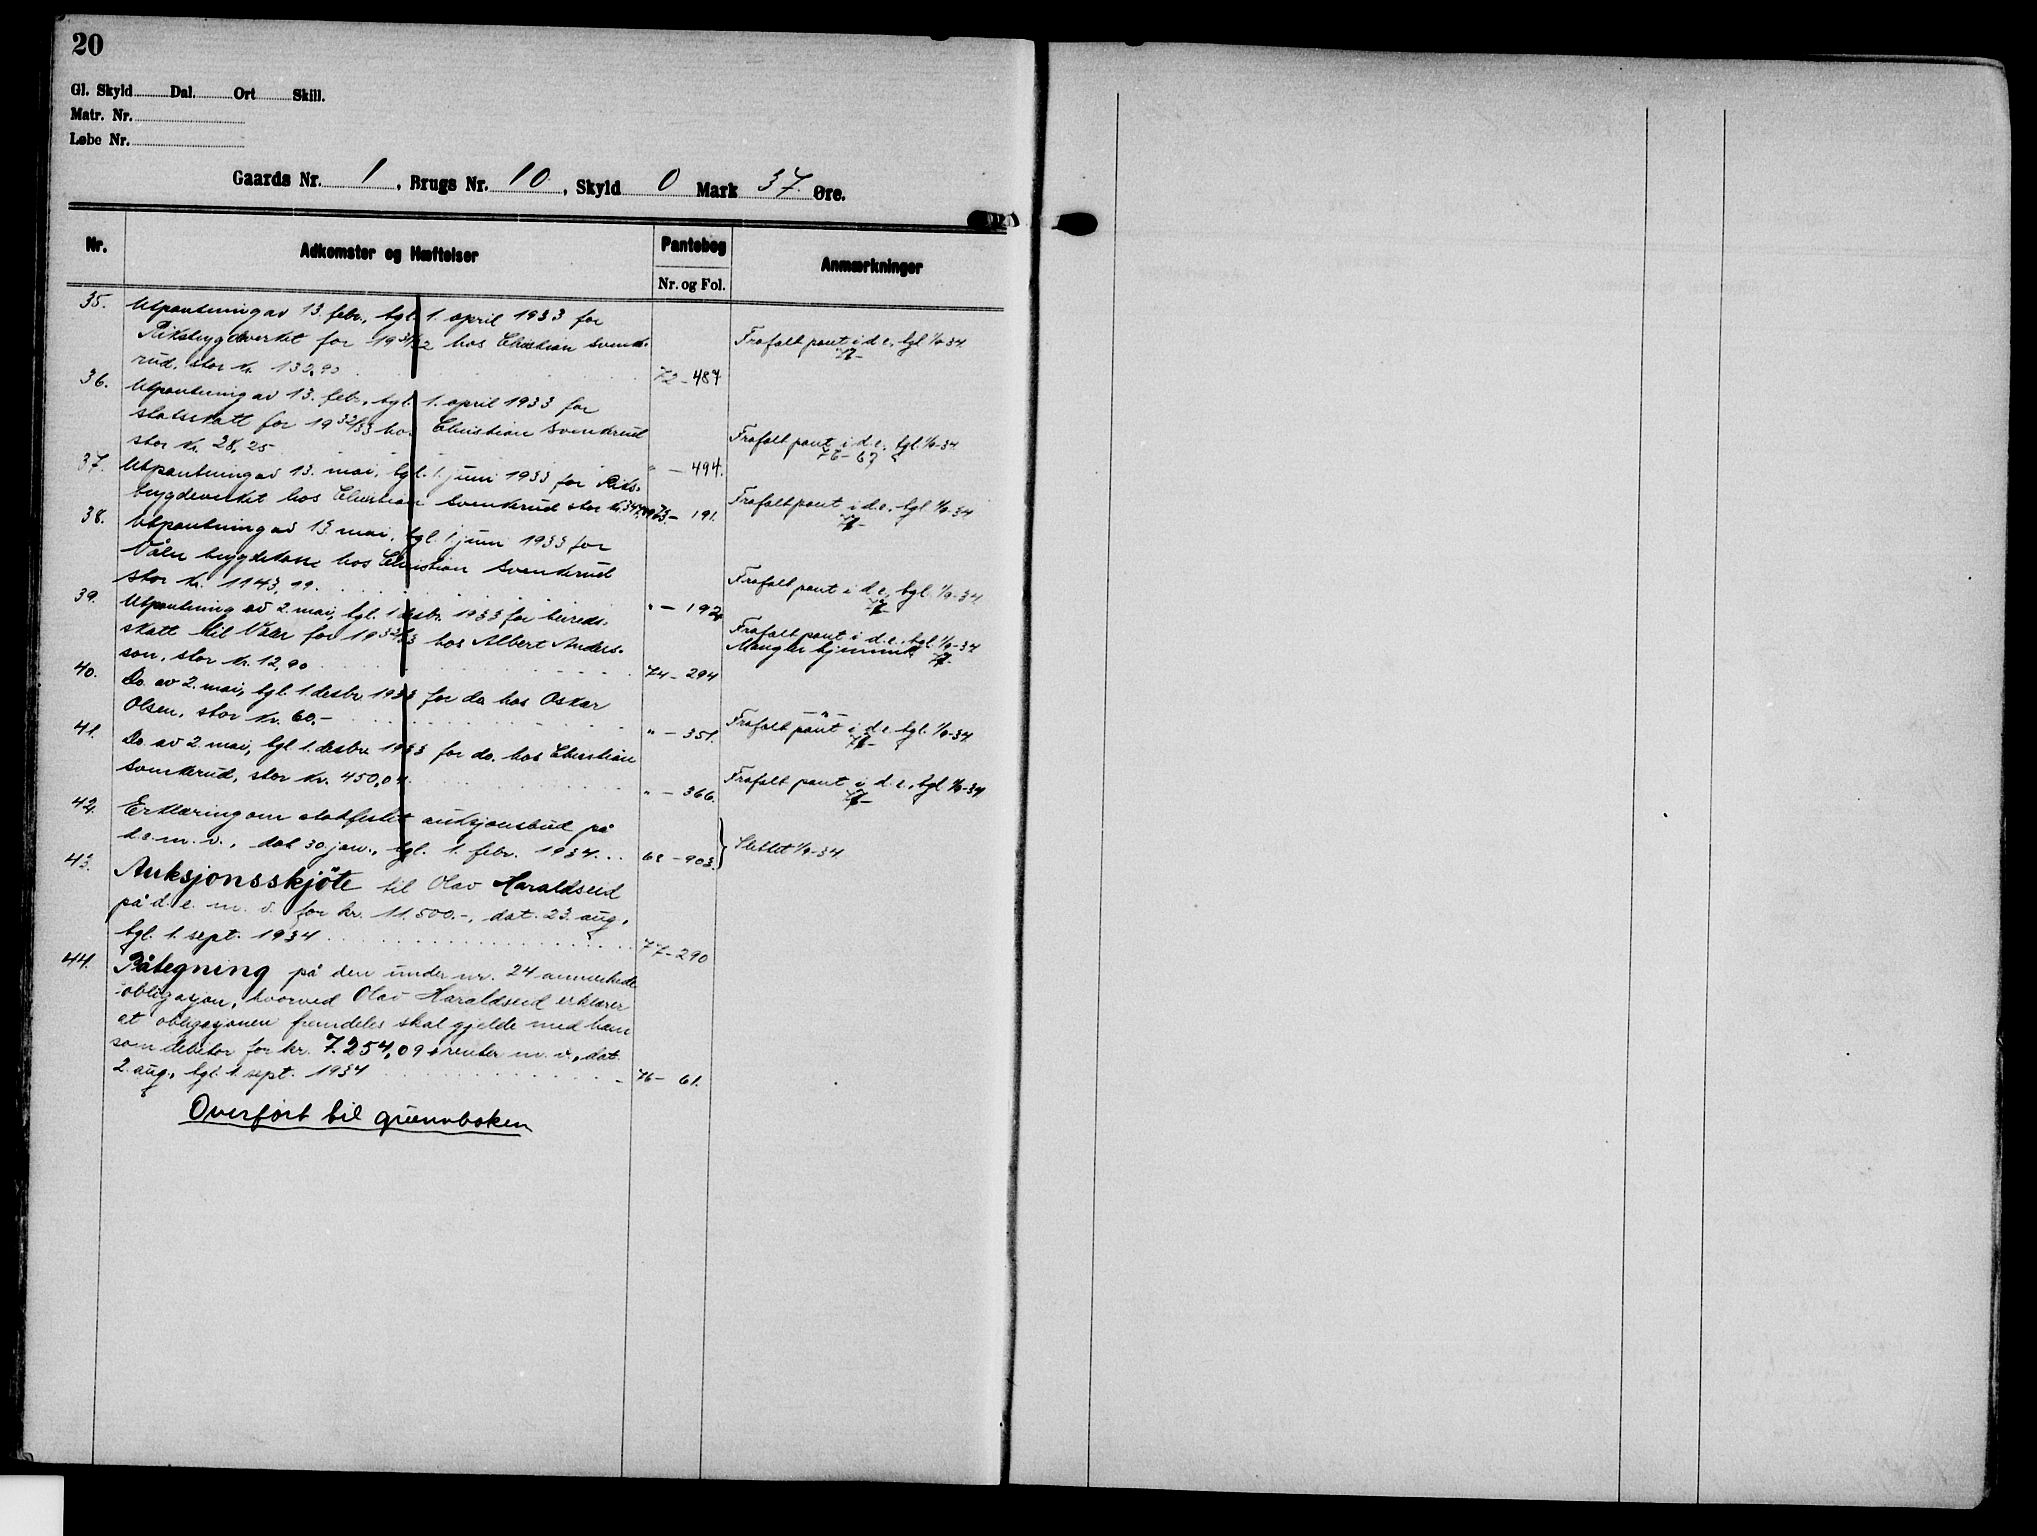 20
Gl. Skyld Dal. Ort Skill.
Matr. Nr.
Løbe Nr.
Gaards Nr. 1, Brugs Nr. 10, Skyld 0 Mark 37. Øre.
Nr. Adkomster og Hæftelser Pantebog Anmærkninger
Nr. og Fol.
35. Utpantning av 13. febr., tgl. 1. april 1933 for
Riksbygdeverket for 1931/32 hos Christian Svenk-
rud, stor kr. 130,90 72 - 487
Frafalt pant i d.e., tgl. 1/9-34.
36. Utpantning av 13. febr., tgl. 1. april 1933 for
statsskatt for 1932/33 hos Christian Svenkrud
stor kr. 28,25 " - 494.
Frafalt pant i d.e., tgl. 1/9-34
76-67
37. Utpantning av 13. mai, tgl. 1. juni 1933 for Riks-
bygdeverket hos Christian Svenkrud stor kr. 73 - 191.
Frafalt pant i d.e., tgl. 1/9-34
38. Utpantning av 13. mai, tgl. 1. juni 1933 for
Våler bygdekasse hos Christian Svenkrud
stor kr. 1143,19. " - 192.
Frafalt pant i d.e., tgl. 1/9-34.
39. Utpantning av 2. mai, tgl. 1. desbr. 1933 for herreds-
skatt til Våler for 1932/33 hos Albert Anders-
son, stor kr. 12,90 74 - 294
Frafalt pant i d.e., tgl. 1/9-34
Mangler hjemmel.
40. Do. av 2. mai, tgl. 1. desbr. 1933 for do. hos Oskar
Olsen, stor kr. 60.- " - 351.
- " -
Frafalt pant i d.e., tgl. 1/9-34
41. Do. av 2. mai, tgl. 1. desbr. 1933 for do. hos Christian
Svenkrud, stor kr. 450,04. " - 366.
Frafalt pant i d.e., tgl. 1/9-34
42. Erklæring om stadfestet auksjonsbud på
d.e. m. v., dat. 30. jan., tgl. 1. febr. 1934... 68 - 903.
Slettet 1/9-34.
43. Auksjonsskjöte til Olav Haraldseid
på d. e. m. v. for kr. 11.500.-, dat. 23. aug.,
tgl. 1. sept. 1934 77-290
44. Påtegning på den under nr. 24 anmerkede
obligasjon, hvorved Olav Haraldseid erklærer
at obligasjonen fremdeles skal gjelde med ham
som debitor for kr. 7.254,09 + renter m. v., dat.
2. aug., tgl. 1. sept. 1934 76 - 61.
Overført til grunnboken